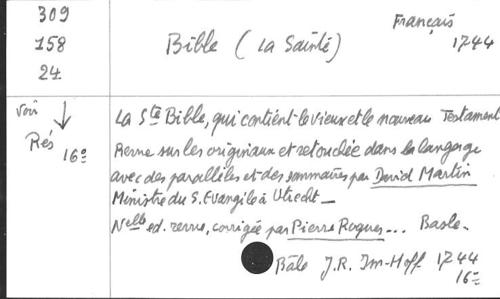 309
158
24
Bible (La Sainte)
Français
1744
voir
Rés
16º
La Ste Bible, qui contient le vieux et le nouveau Testament
Revue sur les originaux et retouchée dans le langage
avec des parallèles et des sommaires par David Martin
Ministre du S. Evangile à Utrecht _
Nelle ed. revue, corrigée par Pierre Roques... Basle.
Bâle J.R. Im-Hoff 1744
16º